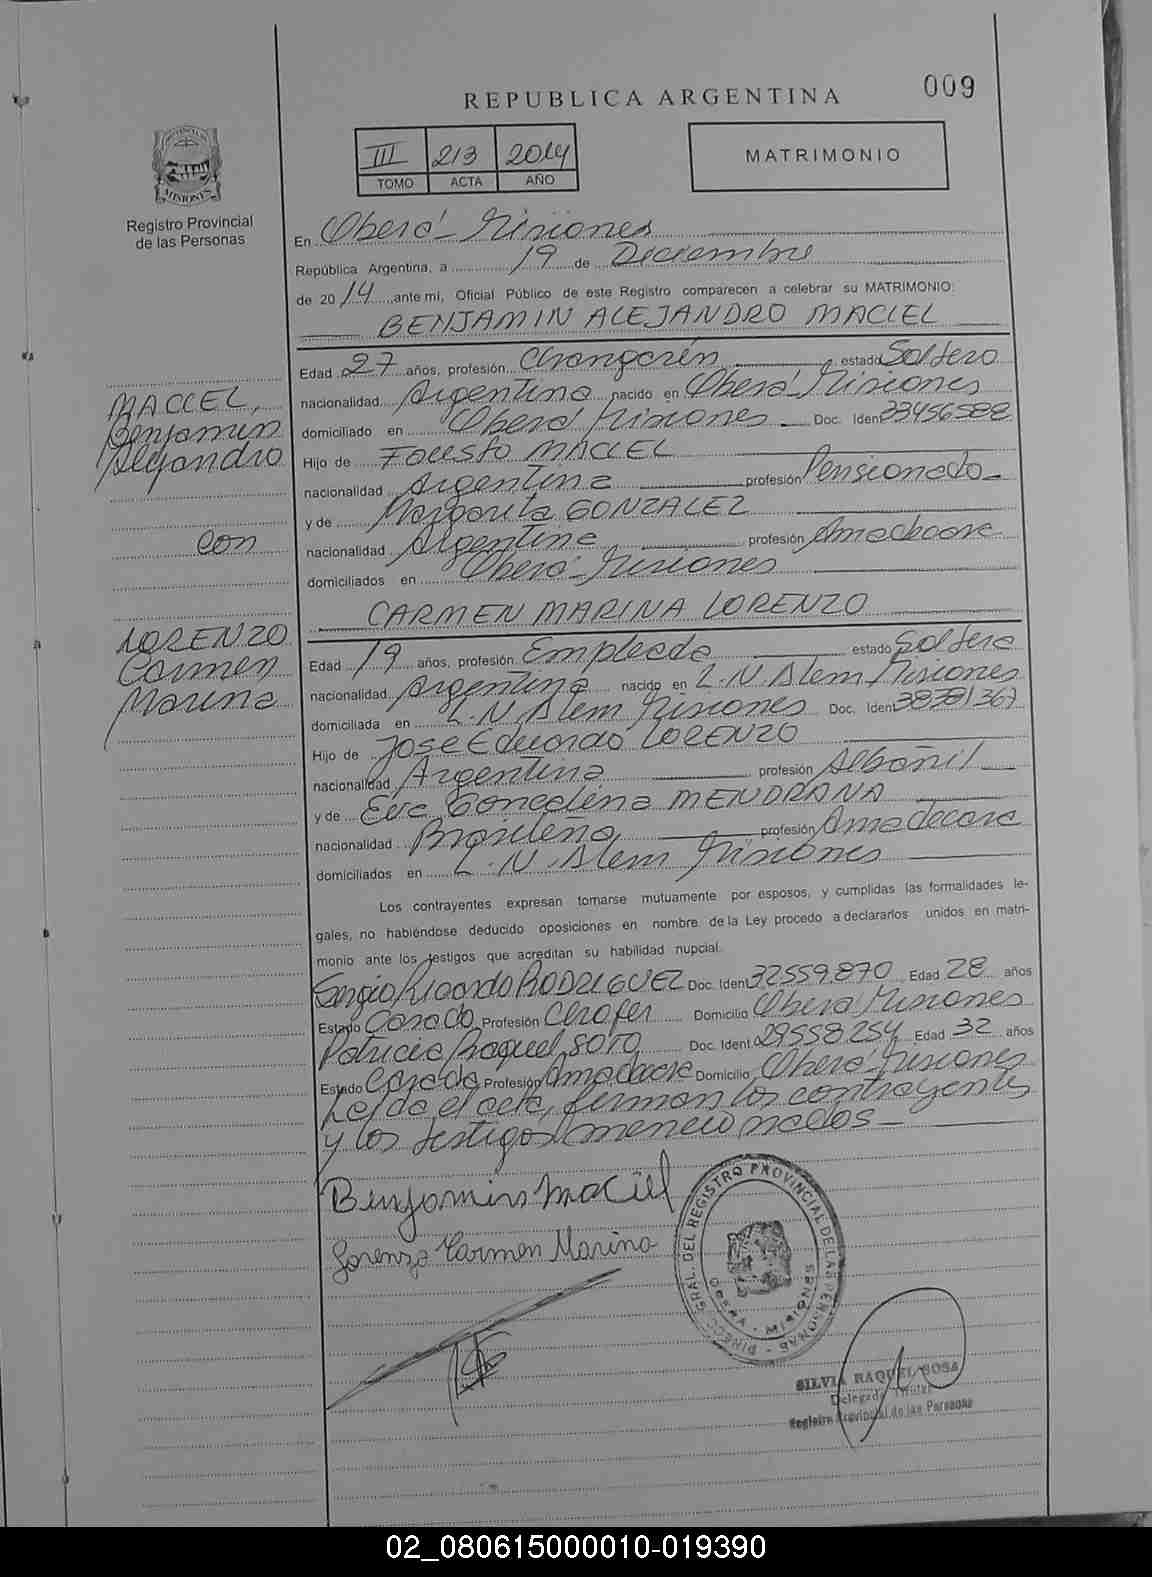 009
REPUBLICA ARGENTINA
III 213 2014
TOMO ACTA AÑO
MATRIMONIO
PROVINCIA DE
MISIONES
Registro Provincial
de las Personas
En Oberá - Misiones
República Argentina, a 19 de Diciembre
de 2014 ante mi, Oficial Público de este Registro comparecen a celebrar su MATRIMONIO:
BENJAMIN ALEJANDRO MACIEL
Edad 27 años, profesión Changarín estado Soltero
nacionalidad Argentina nacido en Oberá Misiones
domiciliado en Oberá Misiones Doc. Iden 33456588
Hijo de Fausto MACIEL
nacionalidad Argentina profesión Pensionado
y de Margarita GONZALEZ
nacionalidad Argentina profesión Ama de casa
domiciliados en Oberá - Misiones
MACIEL,
Benjamin
Alejandro
con
LORENZO
Carmen
Marina
CARMEN MARINA LORENZO
Edad 19 años, profesión Empleada estado Soltera
nacionalidad Argentina nacido en L.N. Alem Misiones
domiciliada en L.N. Alem Misiones Doc. Iden 38781367
Hijo de Jose Eduardo LORENZO
nacionalidad Argentina profesión Albañil
y de Eva MENDRANA
nacionalidad Brasileña profesión Ama de casa
domiciliados en L.N. Alem Misiones
Los contrayentes expresan tomarse mutuamente por esposos, y cumplidas las formalidades le-
gales, no habiéndose deducido oposiciones en nombre de la Ley procedo a declararlos unidos en matri-
monio ante los testigos que acreditan su habilidad nupcial.
Sergio Ricardo RODRIGUEZ Doc. Iden 32559.870 Edad 28 años
Estado Casado Profesión Chofer Domicilio Oberá Misiones
Patricia Raquel SOTO Doc. Ident. 29558254 Edad 32 años
Estado Casada Profesión Ama de casa Domicilio Oberá - Misiones
Leída el acta, firman los contrayentes
y los testigos mencionados -
Benjamin Maciel
Lorenzo Carmen Marina
DIRECC. GRAL. DEL REGISTRO PROVINCIAL DE LAS PERSONAS
OBERA - MISIONES
SILVIA RAQUEL SOSA
Delegada Titular
Registro Provincial de las Personas
02_080615000010-019390